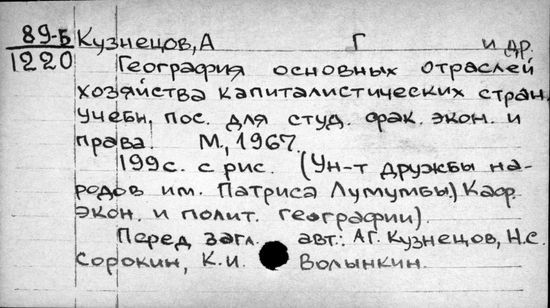 89-Б Кузнецов, А Г и др.
1220 География основных отраслей
хозяйства капиталистических стран.
Учебн. пос. для студ. фак. экон. и
права. М., 1967.
199с. с рис. (Ун-т дружбы на-
родов им. Патриса Лумумбы.) Каф.
экон. и полит. географии).
Перед загл. авт.: А.Г. Кузнецов, Н.С.
Сорокин, К.И. Волынкин.